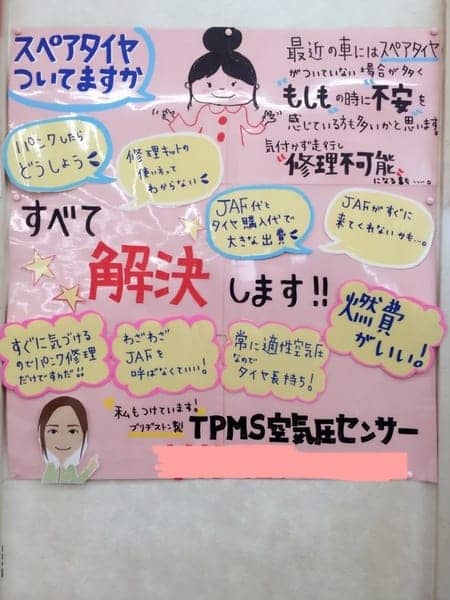 スペアタイヤ
ついてますか
最近の車にはスペアタイヤ
がついていない場合が多く
"もしも"の時に"不安"を
感じている方も多いかと思います。
気付かず走行し
"修理不可能"
になる事も・・・。
パンクしたら
どうしよう
修理キットの
使い方って
わからない
JAF代と
タイヤ購入代で
大きな出費
JAFがすぐに
来てくれないかも…。
すべて
解決
します!!
すぐに気づける
のでパンク修理
だけですんだ!!
わざわざ
JAFを
呼ばなくていい!
常に適性空気圧
なので
タイヤ長持ち!
燃費
がいい!
私もつけています!
ブリヂストン製
TPMS空気圧センサー